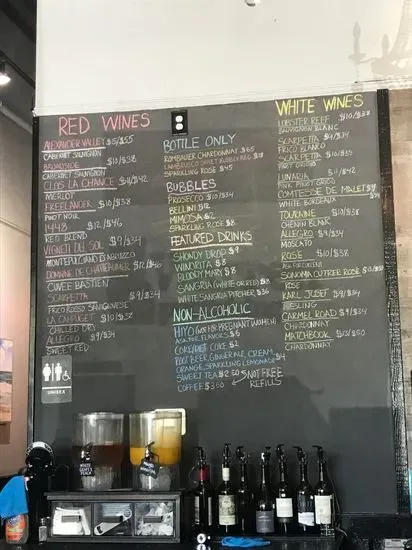 RED WINES
ALEXANDER VALLEY $15/$55
CABERNET SAUVIGNON
BROADSIDE $10/$38
CABERNET SAUVIGNON
CLOS LA CHANCE $11/$42
MERLOT
FREELANDER $10/$38
PINOT NOIR
1448 $12/$46
RED BLEND
VIGNETI DEL SOL $9/$34
MONTEPULCIANO D'ABRUZZO
DOMAINE DE $12/$46
CUVEE BASTIEN
SCARPETTA $9/$34
FRICO ROSSO
$10/$38
CHILLED DRY
ALLEGRO $9/$34
SWEET RED
UNISEX
BOTTLE ONLY
ROMBAUER CHARDONNAY $65
LAMBRUSCO SWEET BUBBLY RED
SPARKLING ROSE $45
BUBBLES
PROSECCO $10/$38
BELLINI $12
MIMOSA $8
SPARKLING ROSE $8
FEATURED DRINKS
SHONDY DROP $9
WINORITA $8
BLOODY MARY $8
SANGRIA (WHITE OR RED) $8
WHITE SANGRIA PITCHER $36
NON-ALCOHOLIC
HIYO (NOT FOR PREGNANT WOMEN)
ASK FOR FLAVORS $6
COKE/DIET COKE $2
ROOT BEER, GINGER ALE, CREAM,
ORANGE, SPARKLING LEMONADE $4
SWEET TEA $2.50
COFFEE $3.50
NOT FREE
REFILLS
WHITE WINES
LOBSTER REEF $10/$38
SAUVIGNON BLANC
SCARPETTA $9/$34
FRICO BIANCO
SCARPETTA $10/$38
PINOT GRIGIO
LUNARIA $11/$42
PINK PINOT GRIGIO
COMTESSE DE MALET $9/$34
WHITE BORDEAUX
TOURAINE $10/$38
CHENIN BLANC
ALLEGRO $9/$34
MOSCATO
ROSE $10/$38
SONOMA CUTRER ROSE
ROSE
KARL JOSEF $9/$34
RIESLING
CARMEL ROAD $9/$34
CHARDONNAY
MATCHBOOK $13/$50
CHARDONNAY